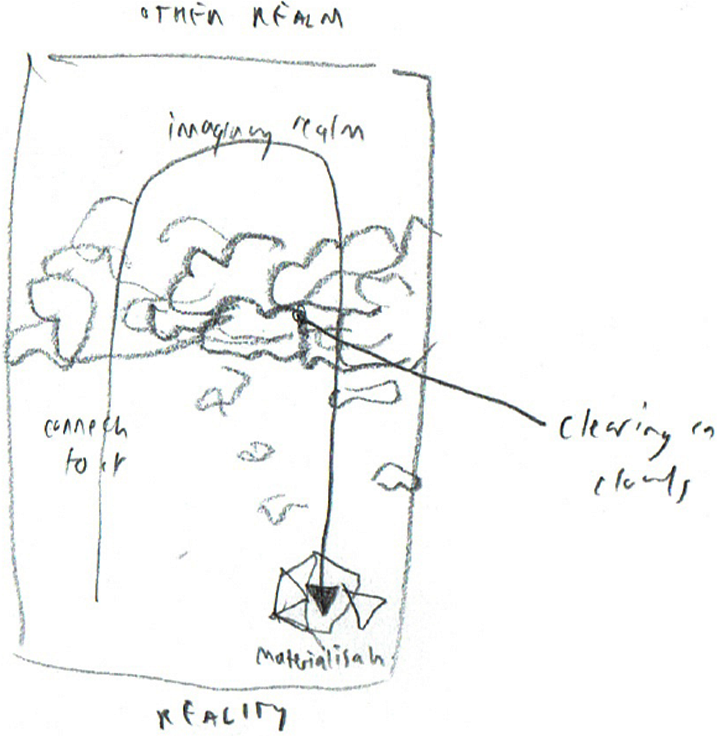 OTHER REALM
imaginary realm
connects
to it
clearing in
clouds
Materialisah
REALITY